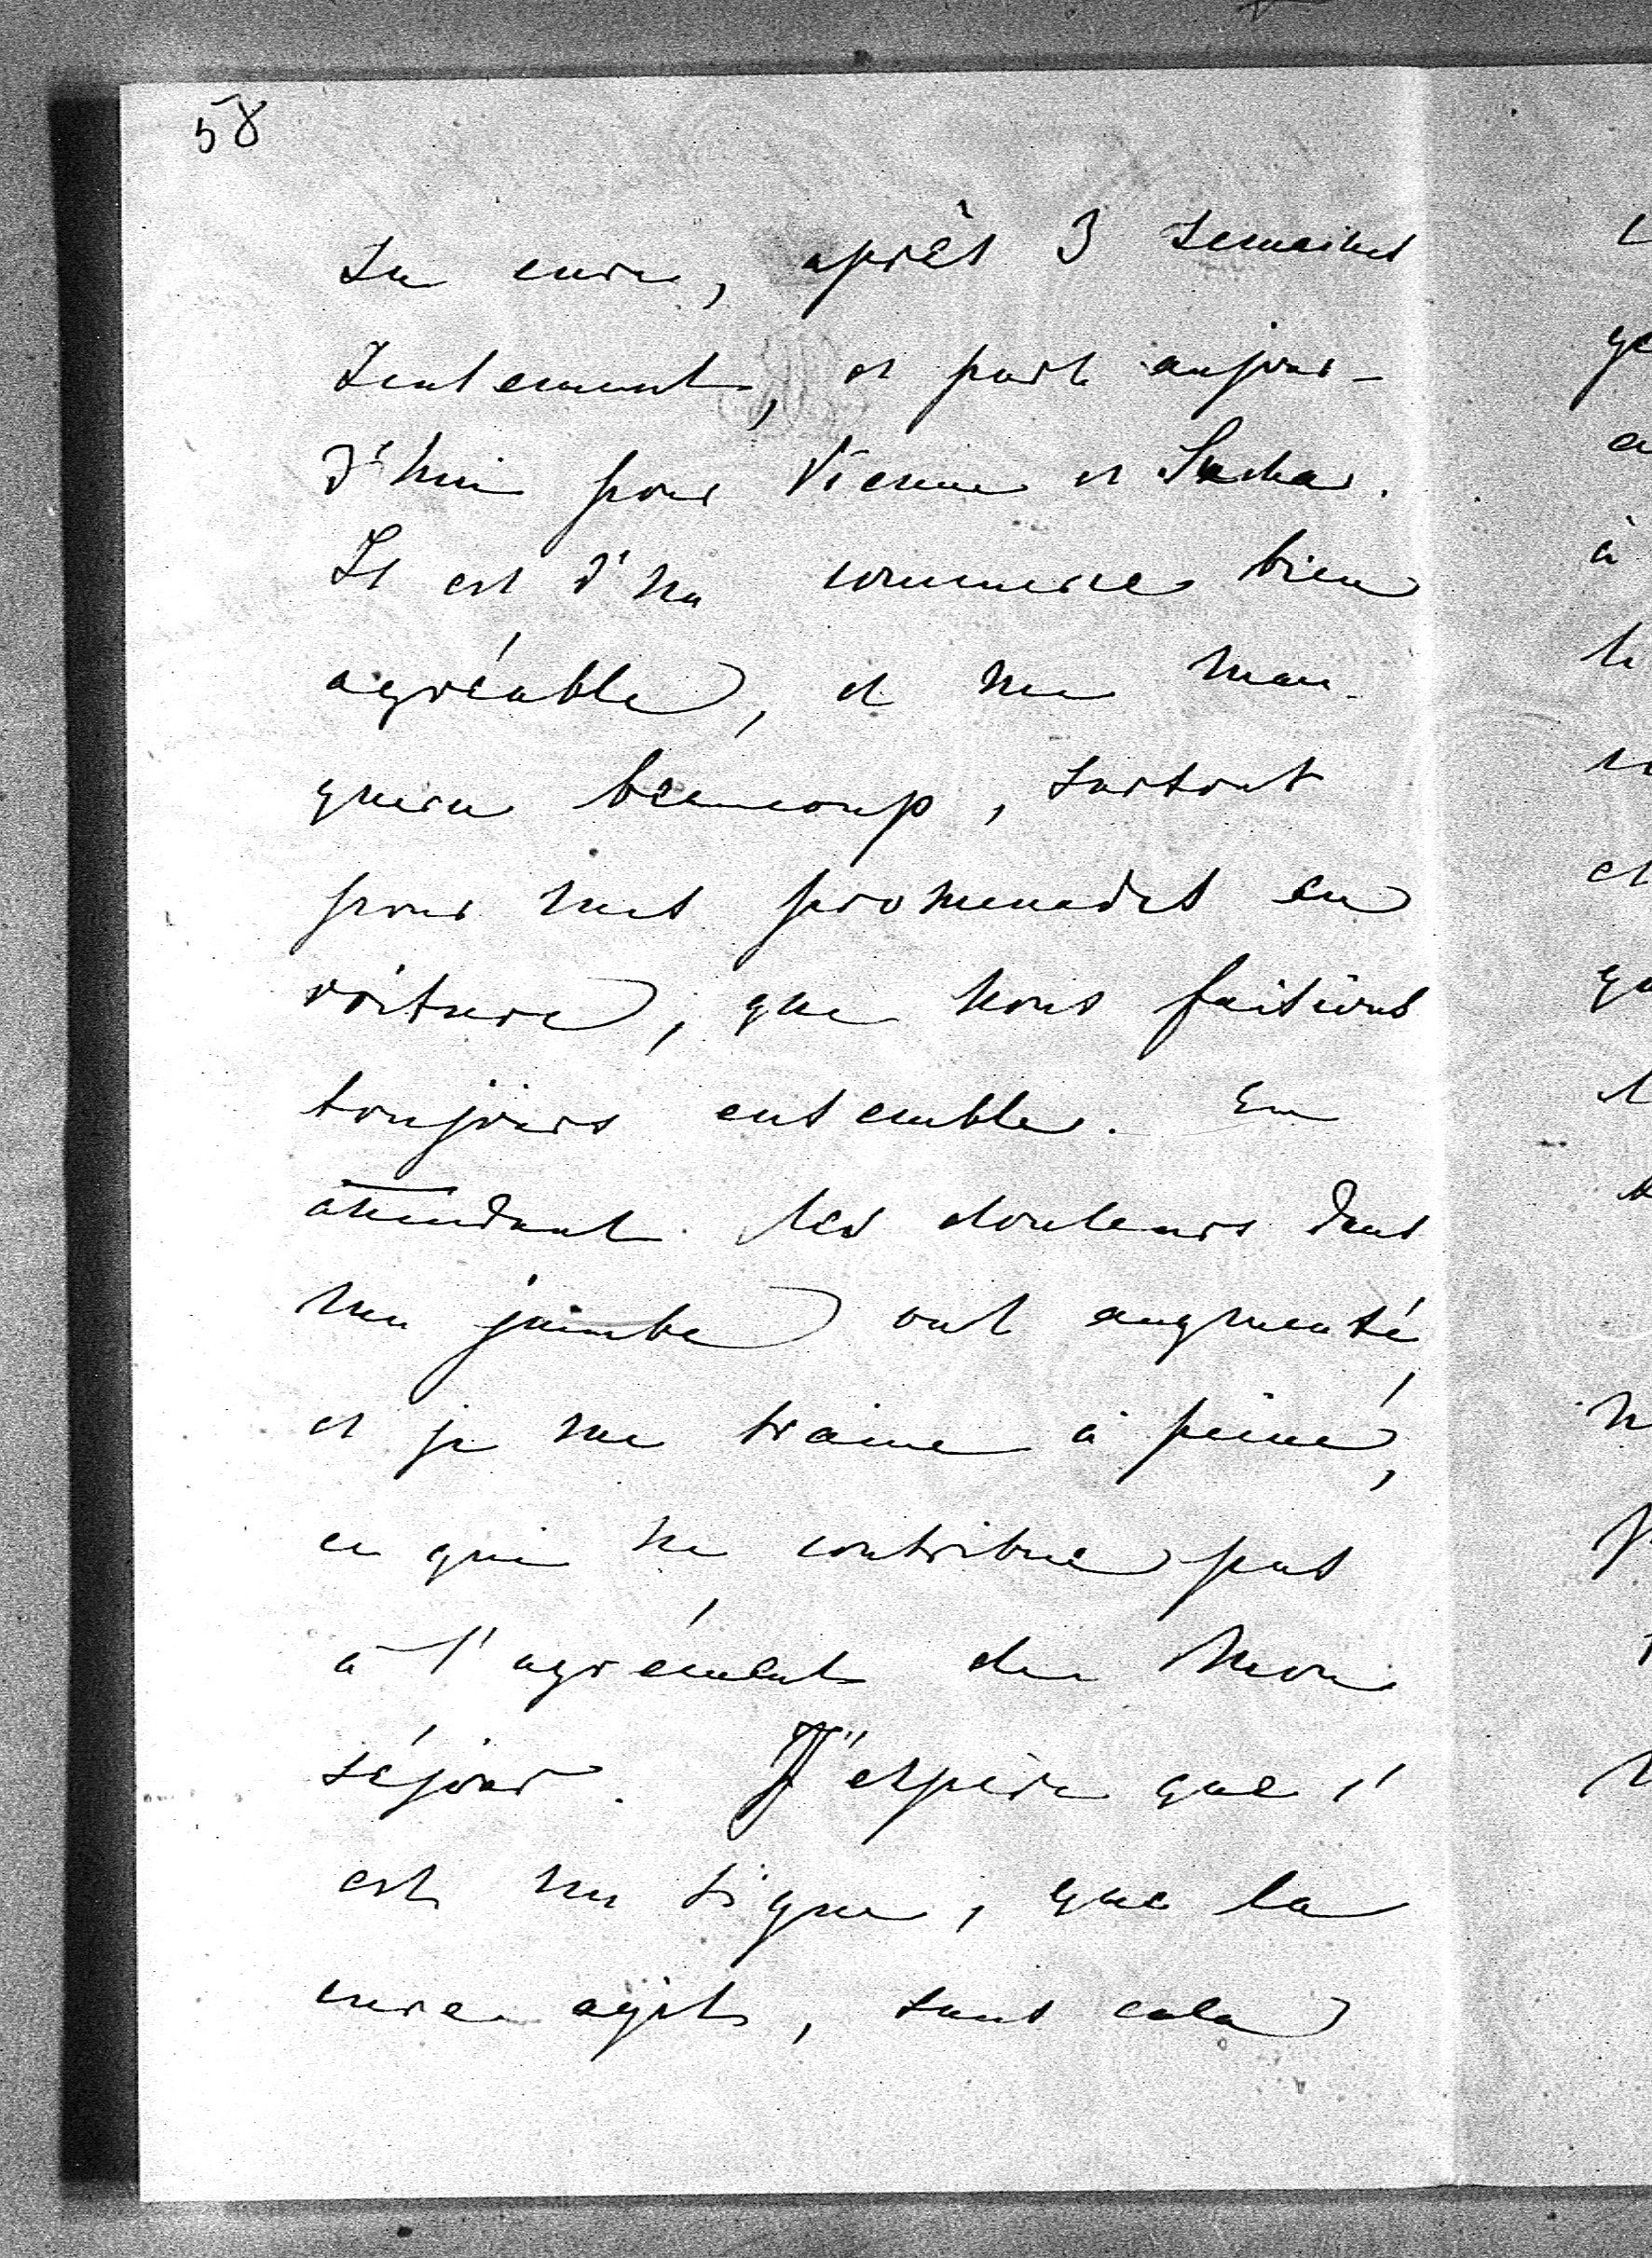 58
sa cure, après 3 semaines
seulement, et part aujour-
d'hui pour Vienne et Sacher.
Il est d'un commerce bien
agréable, et me man-
quera beaucoup, surtout
pour mes promenades en
voiture, que nous faisions
toujours ensemble. En
attendant les douleurs dans
ma jambe ont augmenté
et je me traine à peine,
ce qui ne contribue pas
à l'agrément de mon
séjour. J'espère que c'
est un signe, que la
cure agit, sans cela